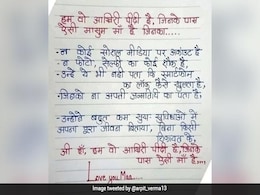 हम वो आखिरी पीढ़ी हैं, जिनके पास
ऐसी मासूम माँ है जिनका.....
-न कोई सोशल मीडिया पर अकाउंट है
-न फोटो, सेल्फी का कोई शौक है,
-उन्हें ये भी नहीं पता कि स्मार्टफोन
का लॉक कैसे खुलता है,
-जिनको ना अपनी जन्मतिथि का पता है,
-उन्होंने बहुत कम सुख सुविधाओं में
अपना पूरा जीवन बिताया, बिना किसी
शिकायत के,
जी हाँ, हम वो आखिरी पीढ़ी हैं, जिनके
पास ऐसी माँ है....
Love you Maa...
Image tweeted by @arpit_verma13